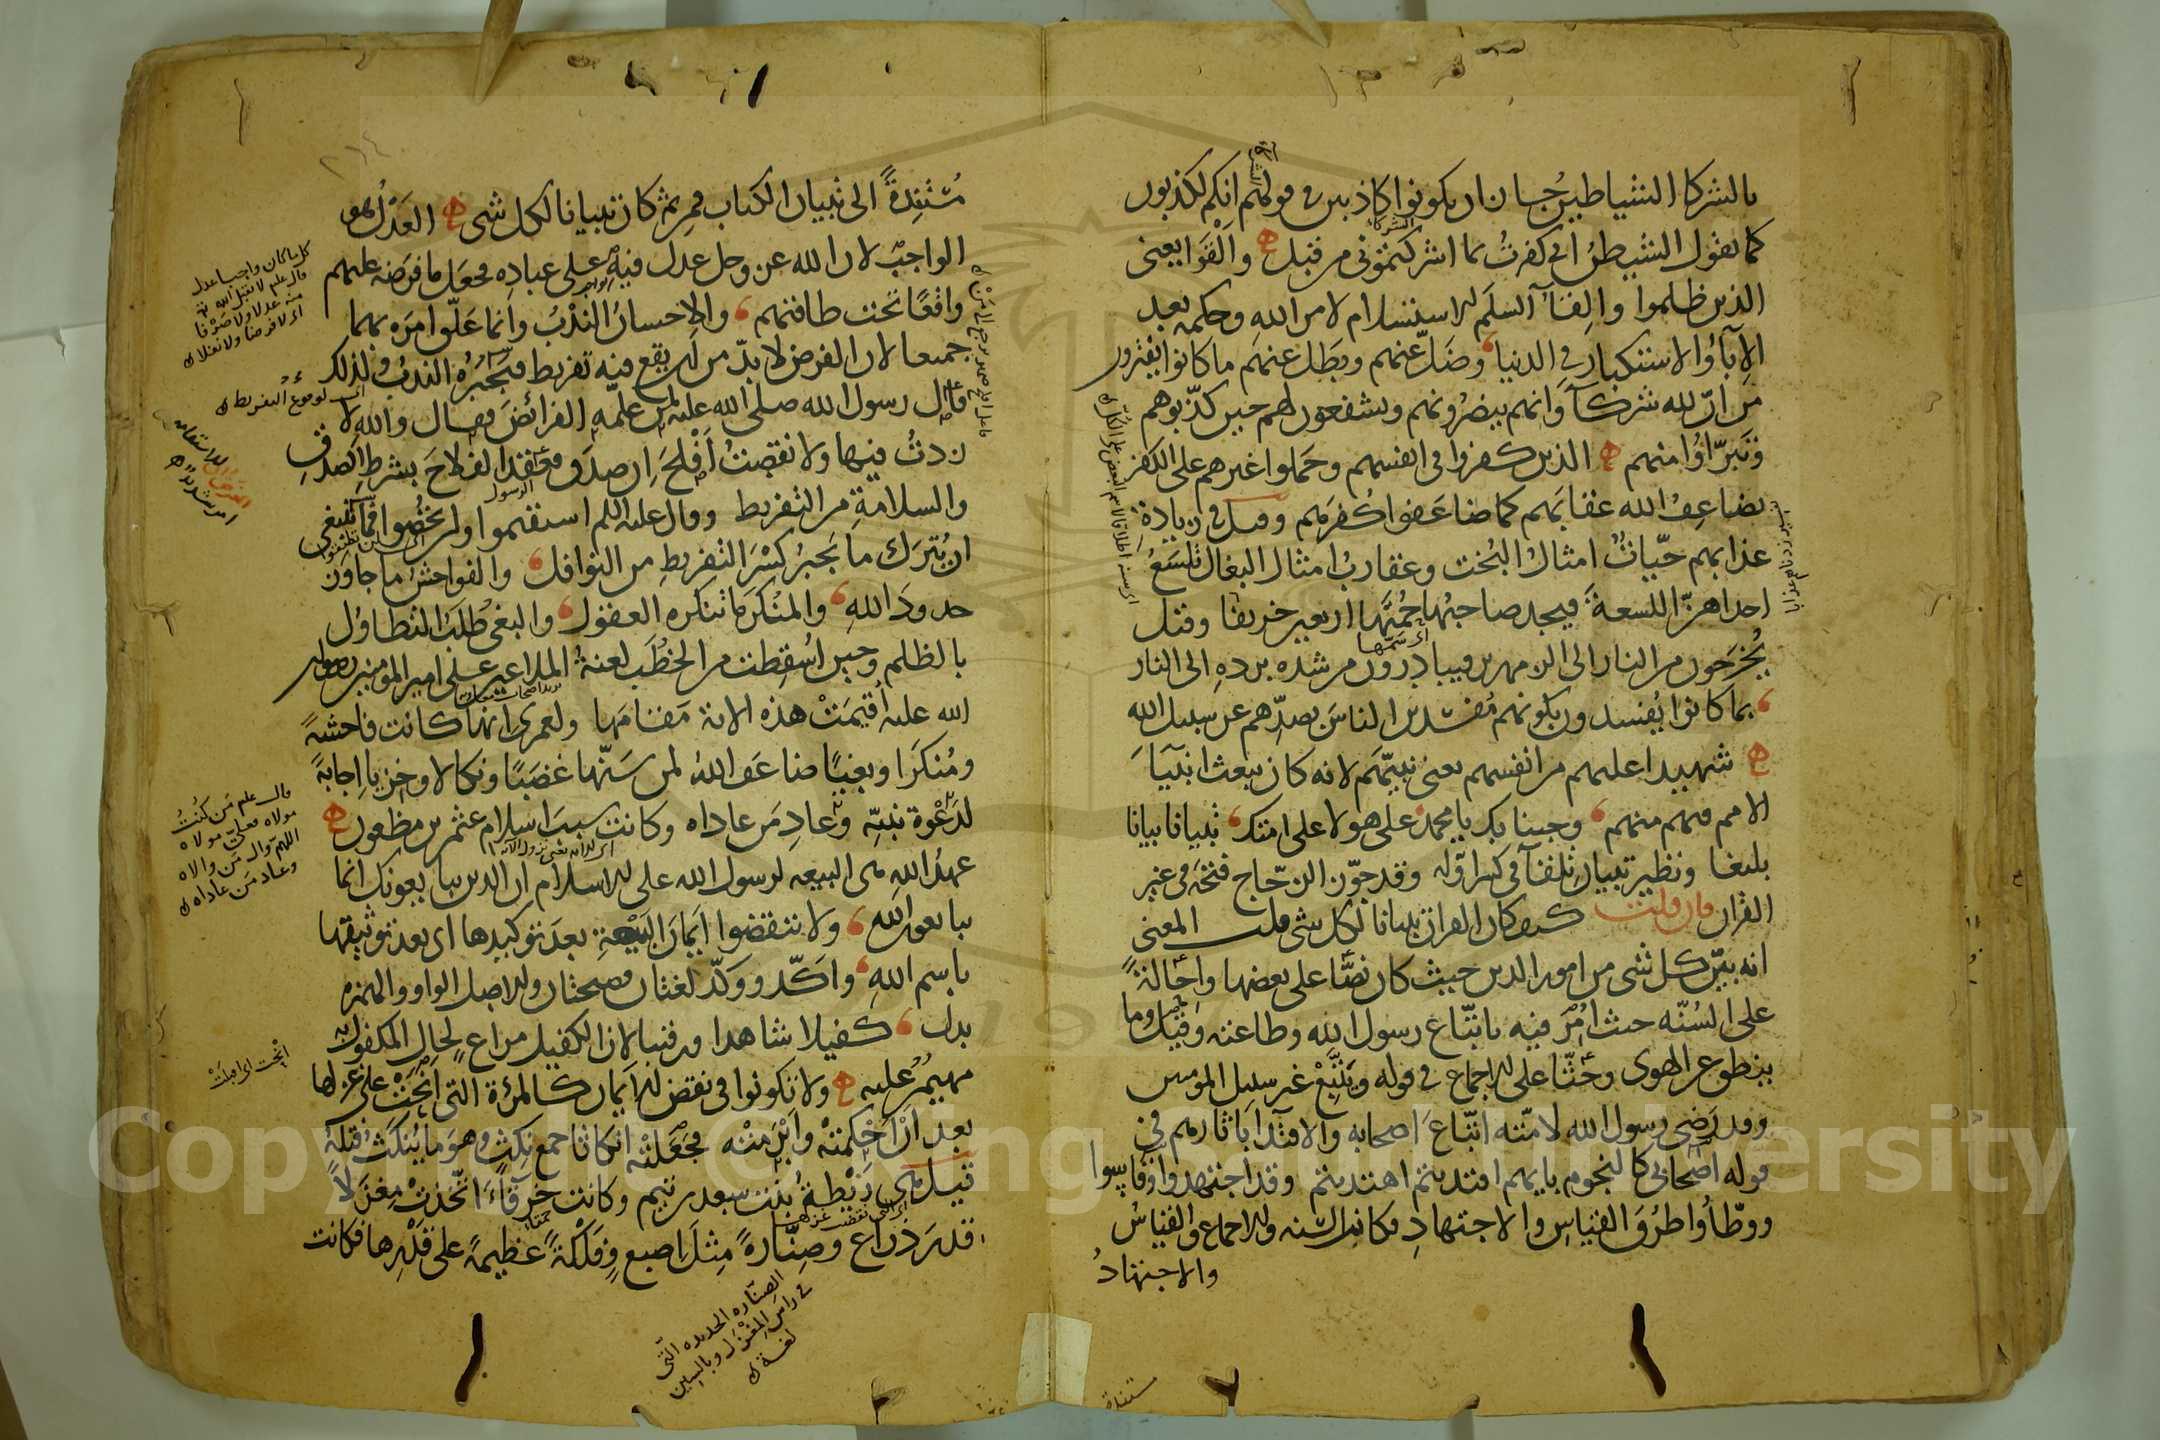 بالشركا الشياطين جاز ان يكونوا كاذبين في قولهم انكم لكاذبون
كما يقول الشيطن اني كفرت بما اشركتموني من قبل والقوا يعني
الذين ظلموا والقاء السلم الاستسلام لامر الله وحكمه بعد
الاباء والاستكبار في الدنيا وضل عنهم وبطل عنهم ما كانوا يفترون
من ان لله شركآ وانهم ينصرونهم ويشفعون لهم حين كذبوهم
وتبرّاوا منهم الذين كفروا في انفسهم وحملوا غيرهم على الكفر
يضاعف الله عقابهم كما ضاعفوا كفرهم وقيل في زيادة
عذابهم حيّات امثال البخت وعقارب امثال البغال تلسع
احداهن اللسعة فيجد صاحبها حمتها اربعين خريفا وقيل
يخرجون من النار الى الزمهرير فيبادرون من شدة برده الى النار
بما كانوا يفسدون بكونهم مفسدين الناس بصدّهم عن سبيل الله
شهيدا عليهم من انفسهم يعنى نبيّهم لانه كان يبعث انبيآ
الامم فيهم منهم وجينا بك يا محمد على هولا على امتك تبيانا بيانا
بليغا ونظير تبيان تلقآ في كسر اوّله وقد جوّز الزجّاج فتحه في غير
القران فان قلت كيف كان القران تبيانا لكل شى قلت المعنى
انه بيّن كل شى من امور الدين حيث كان نصّا على بعضها واحالةً
على السنّة حيث امر فيه باتّباع رسول الله وطاعته وقيل وما
ينطق عن الهوى وحثّا على الاجماع في قوله ويتّبع غير سبيل المومنين
وقد رضى رسول الله لامّته اتّباع اصحابه والاقتدا باثارهم في
قوله اصحابي كالنجوم بايهم اقتديتم اهتديتم وقد اجتهدوا وقاسوا
ووطّأوا طرق القياس والاجتهاد فكانت السنه والاجماع والقياس
والاجتهادُ
مستندة
مستندةً الى تبيان الكتاب فمن ثم كان تبيانا لكل شى العدل هو
الواجب لان الله عز وجل عدل فيه على عباده فجعل ما فرضه عليهم
واقعًا تحت طاقتهم والاحسان الندب وانما علّق امره بهما
جميعا لان الفرض لا بدّ من ان يقع فيه تفريط فيجبره الندب ولذلك
قال رسول الله صلى الله عليه لمن علّمه الفرائض فقال والله لا
زدت فيها ولا نقصت افلح ان صدق فعقد الفلاح بشرط الصدق
والسلامة من التفريط وقال عليه السلم استقيموا ولن تحصوا فما ينبغي
ان يُترك ما يجبر كسر التفريط من النوافل والفواحش ما جاوز
حدود الله والمنكر ما تنكره العقول والبغي طلب التطاول
بالظلم وحين اسقطت من الخطب لعنة الملاعين على امير المومنين رضوان
الله عليه اقيمت هذه الاية مقامها ولعمرى انها كانت فاحشةً
ومنكرا وبغيًا ضاعف الله لمن سنّها غضبًا ونكالا وخزيا اجابةً
لدعوة نبيّه وعاد من عاداه وكانت سبب اسلام عثمن بن مظعون
عهد الله هى البيعه لرسول الله على الاسلام ان الذين يبايعونك انما
يبايعون الله ولا تنقضوا ايمان البيعة بعد توكيدها اي بعد توثيقها
باسم الله واكّد ووكّد لغتان فصيحتان والاصل الواو والهمزه
بدل كفيلا شاهدا ورقيبا لان الكفيل مراع لحال المكفول به
مهيمن عليه ولا تكونوا في نقض الايمان كالمرءة التي انحت على غزلها
بعد ان احكمته وابرمته فجعلته انكاثا جمع نكث وهو ما ينكث فتله
قيل هي ريطة بنت سعد بن تيم وكانت خرقآء اتّخذت مغزلا
قدر ذراع وصنّارة مثل اصبع وفلكة عظيمة على قدرها فكانت
كل ما كان واجبا عدل
قال علم لا يقبل الله
منه عدلا ولا صرفا
اى لا فرضا ولا نفلا
قال علم من كنت
مولاه فعليّ مولاه
اللهم وال من والاه
وعاد من عاداه
انحت اى اقبلت
الصنّاره الحديده التي
في راس المغزل وبالسين
لغة